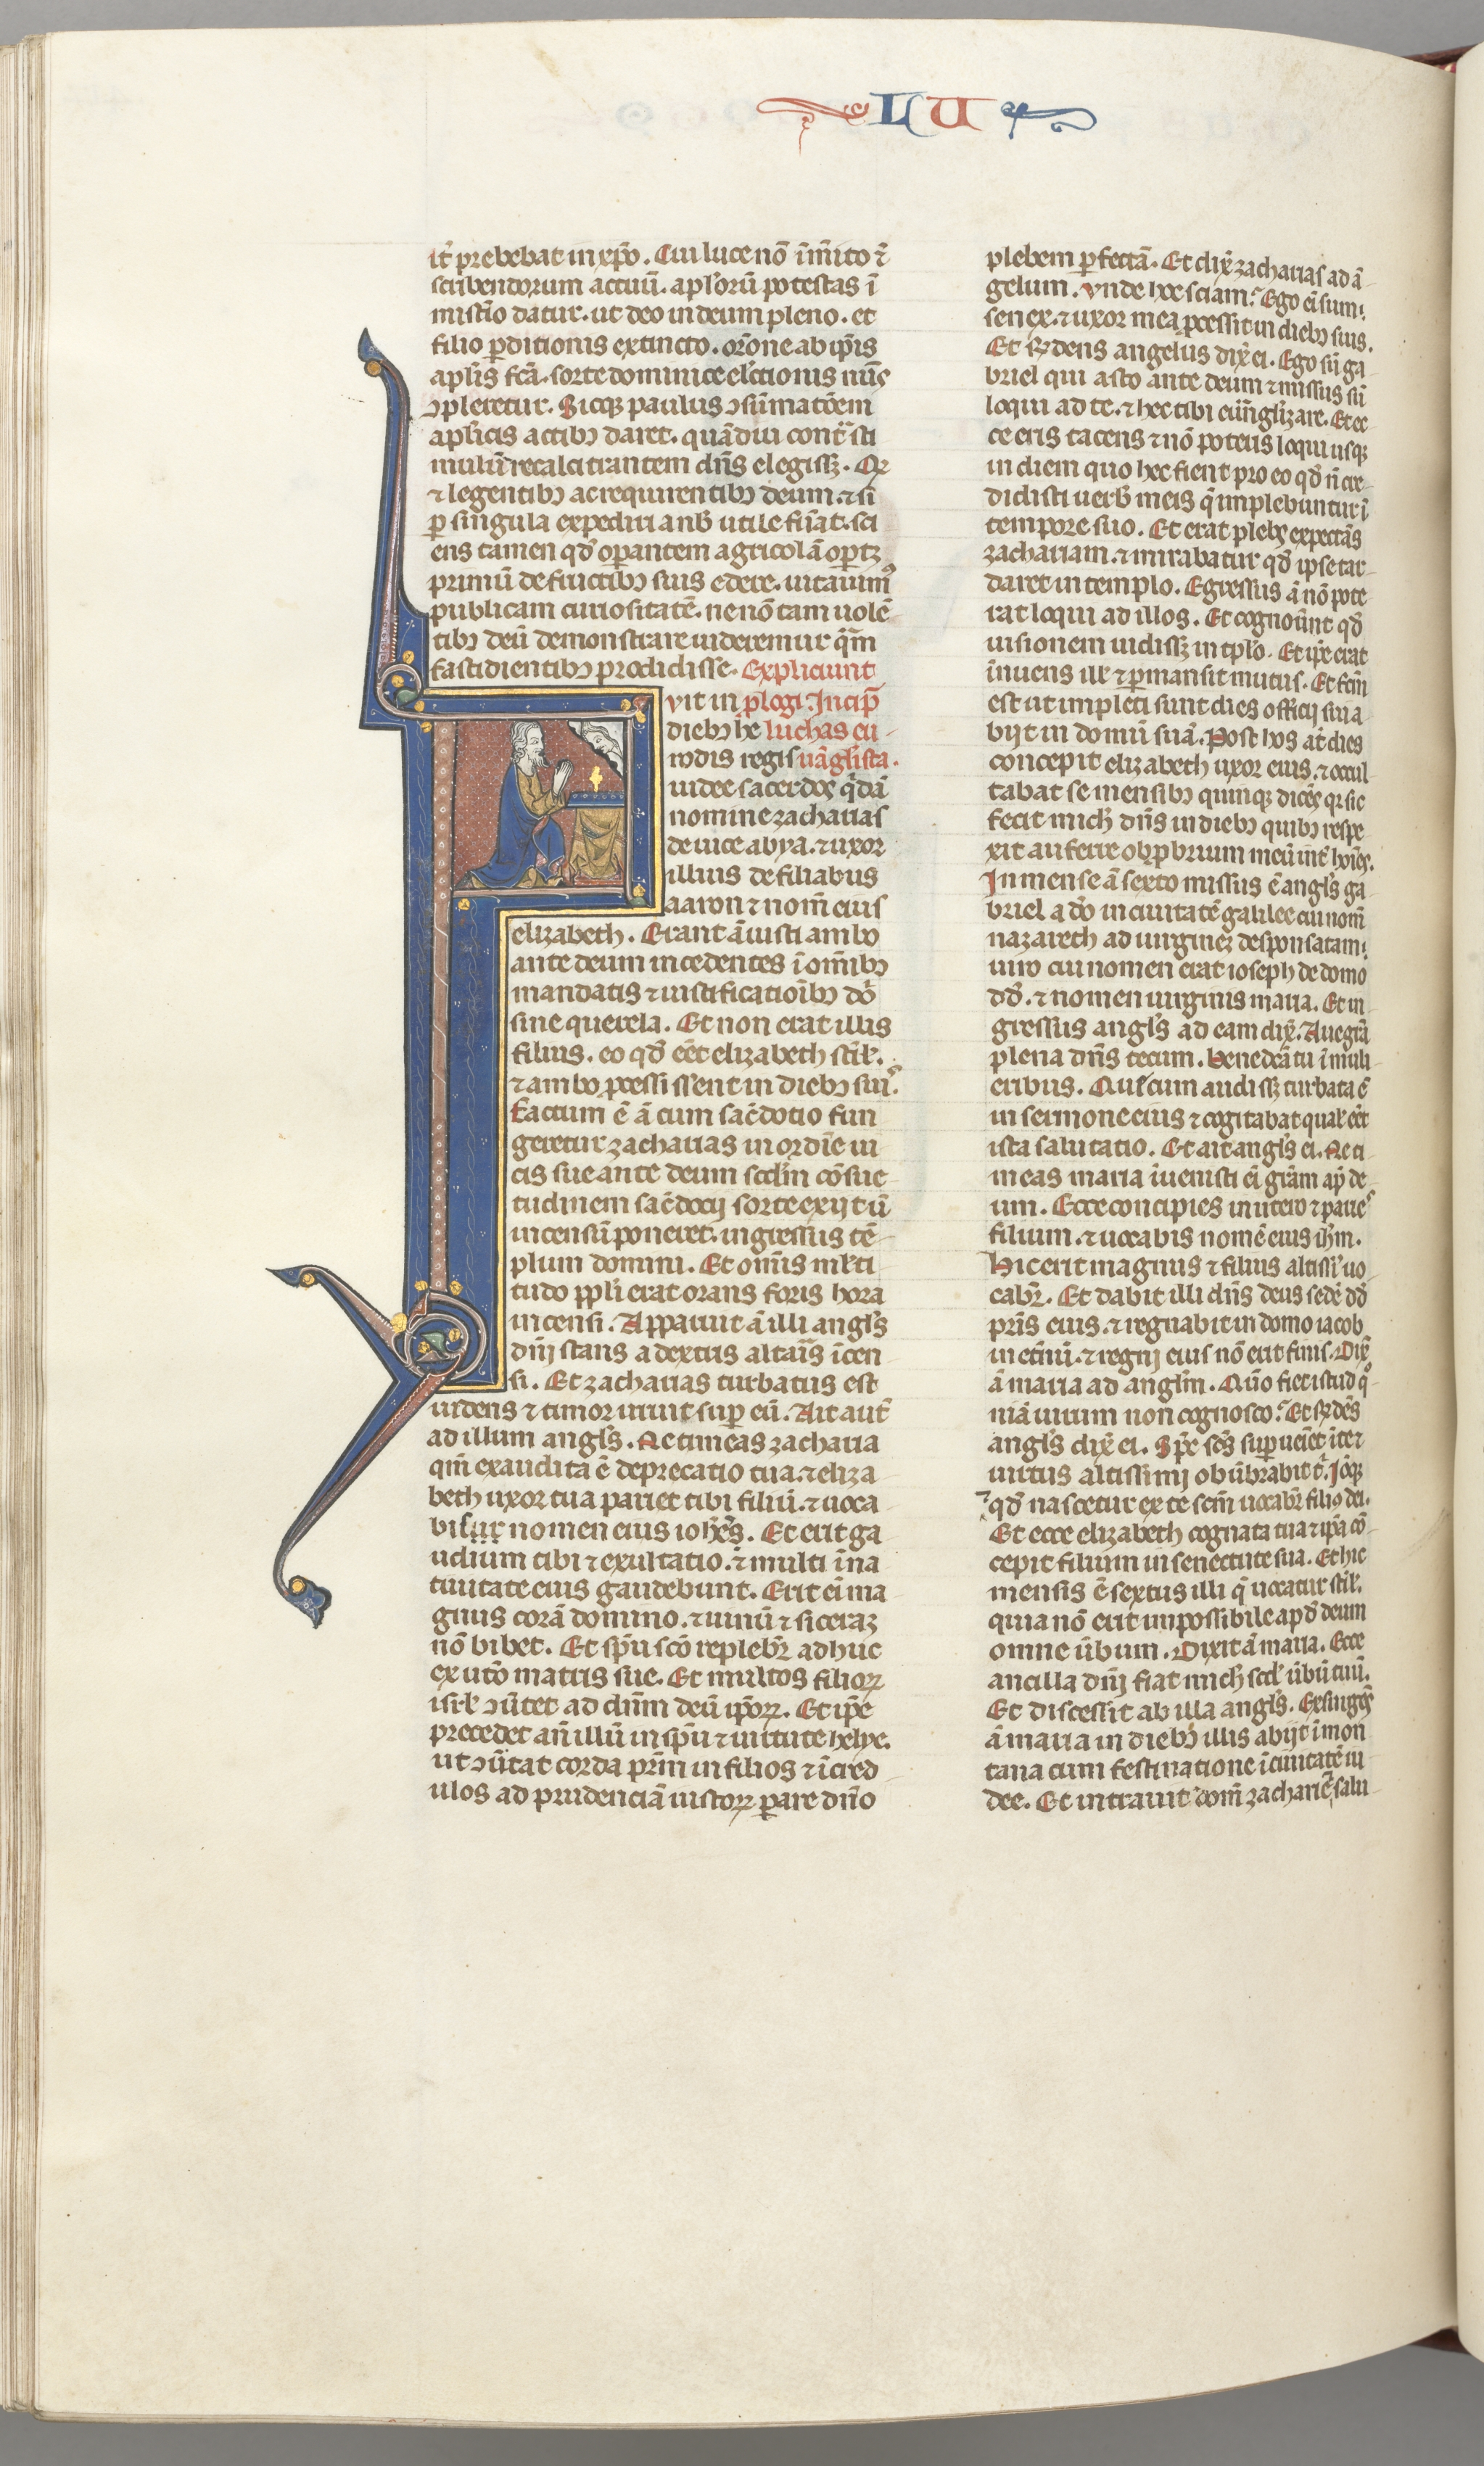 LU
it̾ prebebat in xp̄o. Cui luce nō īm̄ito ⁊̄
scribendorum actuū. apl'orū potestas ī
mistīo datur. ut deo in deum pleno. et
filio p̱ditionis extincto. or̄one ab ip̄is
apl'is fc̄a. sorte dominice el'ctionis nūs
ↄpleretur. Sicq; paulus ↄsūmatōem
apl'icis actibꝫ daret. quādiu cont̄ sti
mulū recalcitrantem dn̄s elegissꝫ. Qꝛ
⁊ legentibꝫ ac requirentibꝫ deum. ⁊ si
ꝑ singula expediri a nob̄ utile fūat. sci
ens tamen qd̄ opantem agricolā optꝫ
primū de fructibꝫ suis edere. uitauimꝰ
publicam curiositatē. ne nō tam uolē
tibꝫ deū demonstrare uideremur q̄m
fastidientibꝫ prodidisse. Expliciunt
vit in plogi. Incip̄
diebꝫ he luchas eu
rodis regis uāgl'ista.
iudee sacerdos q̄dā
nomine zacharias
de uice abya. ⁊ uxor
illius de filiabus
aaron ⁊ nom̄ eius
elizabeth. Erant ā iusti ambo
ante deum incedentes ī om̄ibꝫ
mandatis ⁊ iustificatioībꝫ dō
sine querela. Et non erat illis
filius. eo qd̄ eēt elizabeth st̄il'.
⁊ ambo ꝓcessissent in diebꝫ suiˢ.
Factum ē ā cum sac̄dotio fun
geretur zacharias in ordīe ui
cis sue ante deum scd̄m cōsue
tudinem sac̄docij sorte exijt ū
incensū poneret. ingressus tē
plum domini. Et om̄is ml'ti
tudo ppl'i erat orans foris hora
incensi. Apparuit ā illi angl's
dn̄i stans a dextris altaris īcen
si. Et zacharias turbatus est
uidens ⁊ timor irruit suꝑ eū. Ait aut̄
ad illum angl's. Ne timeas zacharia
qm̄ exaudita ē deprecatio tua. ⁊ eliza
beth uxor tua pariet tibi filiū. ⁊ uoca
bisur nomen eius ioh̄es. Et erit ga
udium tibi ⁊ exultatio. ⁊ multi ī na
tiuitate eius gaudebunt. Erit ei ma
gnus corā domino. ⁊ uinū ⁊ siceraꝫ
nō bibet. Et sp̄u sc̄o replebr̄ adhuc
ex ut̄o matris sue. Et multos filioꝝ
isrl' ↄūtet ad dn̄m deū ip̄oꝝ. Et ip̄e
precedet an̄ illū in sp̄u ⁊ uirtute helye.
ut ↄūtat corda pr̄m in filios ⁊ īcred
ulos ad prudenciā iustoꝝ ꝑare dn̄o
plebem ꝑfectā. Et dix̄ zacharias ad ā
gelum. Unde hoc sciam? Ego eī sum
senex. ⁊ uxor mea ꝓcessit in diebꝫ suis.
Et rn̄dens angelus dix̄ ei. Ego sū ga
briel qui asto ante deum ⁊ missus sū
loqui ad te. ⁊ hec tibi euūgl'izare. Et ec
ce eris tacens ⁊ nō poteris loqui usqꝫ
in diem quo hec fient pro eo qd̄ n̄ cre
didisti uerb̄ meis q̄ implebuntur ī
tempore suo. Et erat plebs expectās
zachariam. ⁊ mirabatur qd̄ ipse tar
daret in templo. Egressus ā nō pote
rat loqui ad illos. Et cognoūnt qd̄
uisionem uidissꝫ in tp̄lo. Et ip̄e erat
īnuens ill' ⁊ ꝑmansit mutus. Et fcm̄
est ut impleti sunt dies officij sui a
bijt in domū suā. Post hos at̄ dies
concepit elizabeth uxor eius. ⁊ occul
tabat se mensibꝫ quinqꝫ dicēs qꝛ sic
fecit mich̄ dn̄s in diebꝫ quibꝫ respe
xit auferre obꝓbrium meū int̄ hoīes.
In mense ā sexto missus ē angl's ga
briel a dō in ciuitatē galilee cui nom̄
nazareth ad uirgineꝫ desponsatam
uiro cui nomen erat ioseph de domo
dd̄. ⁊ nomen uirginis maria. Et in
gressus angl's ad eam dix̄. Aue grā
plena dn̄s tecum. benedc̄a tu ī muli
eribus. Que cum audissꝫ turbata ē
in sermone eius ⁊ cogitabat qual' eēt
ista salutatio. Et ait angl's ei. Ne ti
meas maria īuenisti ei grām ap̄ de
um. Ecce concipies in utero ⁊ parieˢ
filium. ⁊ uocabis nomē eius ih̄m.
Hic erit magnus ⁊ filius altissi' uo
cabr̄. Et dabit illi dn̄s deus sedē dd̄
pr̄is eius. ⁊ regnabit in domo iacob
in et̄nū. ⁊ regni eius nō erit finis. Dix̄
ā maria ad angl'm. Quō fiet istud qͦ
niā uirum non cognosco? Et rn̄dēs
angl's dix̄ ei. Sp̄c sc̄s suꝑueīet ī te ⁊
uirtus altissimi obūbrabit t̄. Iōqꝫ
⁊ qd̄ nascetur ex te scm̄ uocabr̄ filiꝰ dei.
Et ecce elizabeth cognata tua ⁊ ip̄a cō
cepit filium in senectute sua. Et hic
mensis ē sextus illi q̄ uocatur st̄il'.
quia nō erit impossibile apd̄ deum
omne ūbum. Dixit ā maria. Ecce
ancilla dn̄i fiat mich̄ scd̄ ūbū tuū.
Et discessit ab illa angl's. Exsurgēs
ā maria in diebꝫ illis abijt ī mon
tana cum festinatione ī ciuitatē iu
dee. Et intrauit dom̄ zacharie ⁊ salu